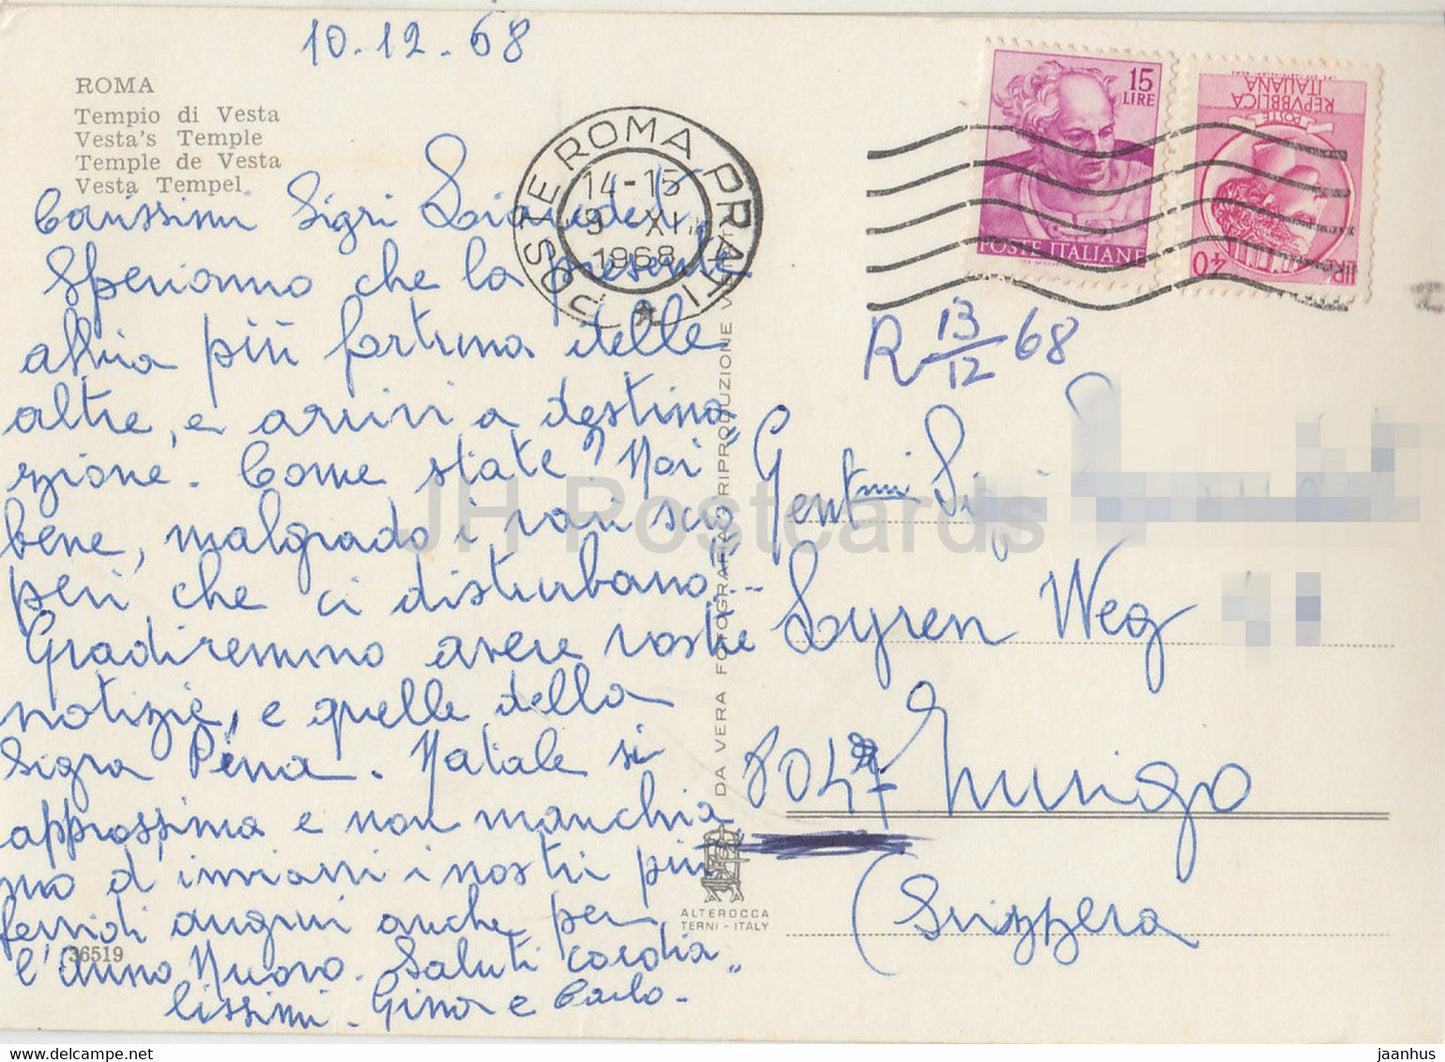 10.12.68
ROMA
Tempio di Vesta
Vesta's Temple
Temple de Vesta
Vesta Tempel
Carissimi Sigri
Speriamo che la presente
abbia più fortuna delle
altre, e arrivi a destina
zione. Come state? Noi
bene, malgrado i vari scio„
peri che ci disturbano...
Gradiremmo avere vostre
notizie, e quelle della
Sigra Pina. Natale si
approssima e non manchia
mo d'inviarvi i nostri più
fervidi auguri anche per
l'Anno Nuovo. Saluti cordia„
lissimi. Gina e Carlo.
36519
POSTE ROMA PRATI
14-15
9 XII
1968
15
LIRE
POSTE ITALIANE
REPVBBLICA
ITALIANA
POSTE
LIRE 40
R 13/12 68
DA VERA FOTOGRAFIA RIPRODUZIONE
Gentmi Sigri
Weg
8047
(Svizzera
ALTEROCCA
TERNI - ITALY
JH Postcards
jaanhus - https://www.delcampe.net